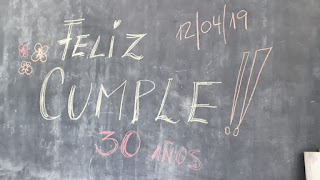 12/04/19
FELIZ
CUMPLE!!
30 AÑOS